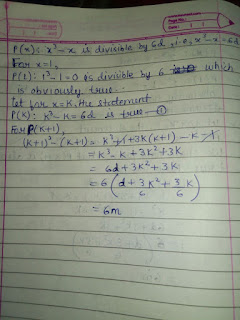 P(x): x³-x is divisible by 6d, i.e, x³-x=6d
For x=1,
P(1): 1³-1=0 is divisible by 6 which
is obviously true.
let for x=K, the statement
P(K): K³-K=6d is true —①
For P(K+1),
(K+1)³-(K+1)= K³+1+3K(K+1) -K-1
= K³-K+3K²+3K
= 6d+3K²+3K
= 6(d+3K²/6+3K/6)
= 6m